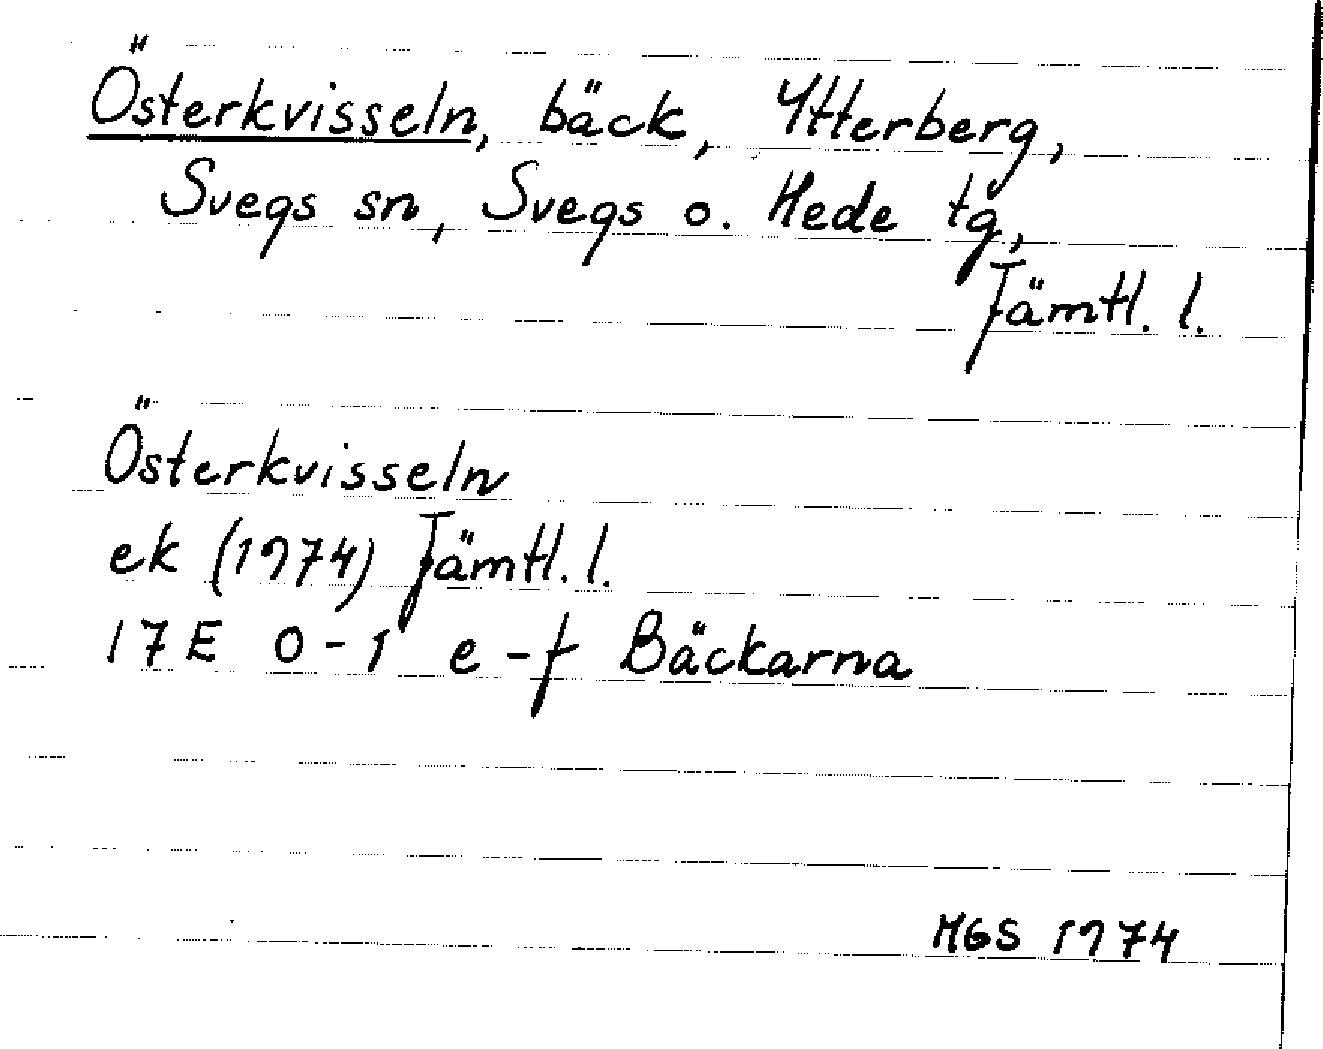 Österkvisseln, bäck, Ytterberg,
Svegs sn, Svegs o. Hede tg,
Jämtl. l.
Österkvisseln
ek (1974) Jämtl. l.
17E 0-1 e-f Bäckarna
MGS 1974